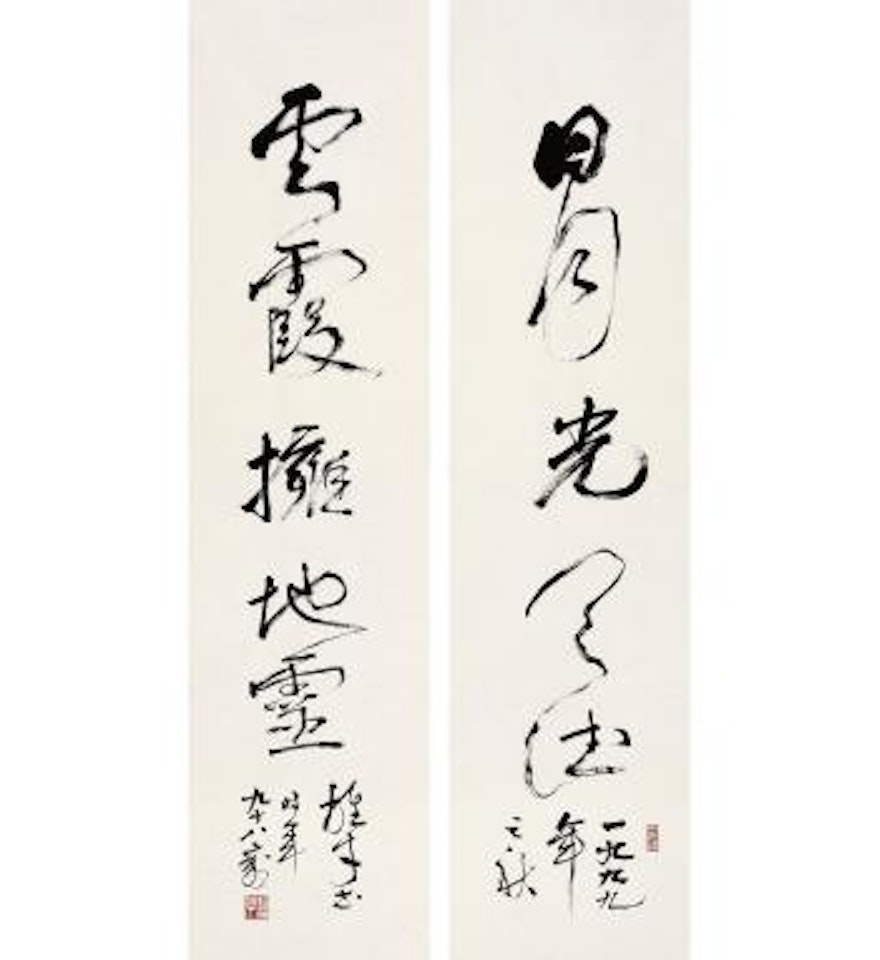 日月光天德
一九九九
年
之秋
雲霞擁地靈
书
时年
九十八歲